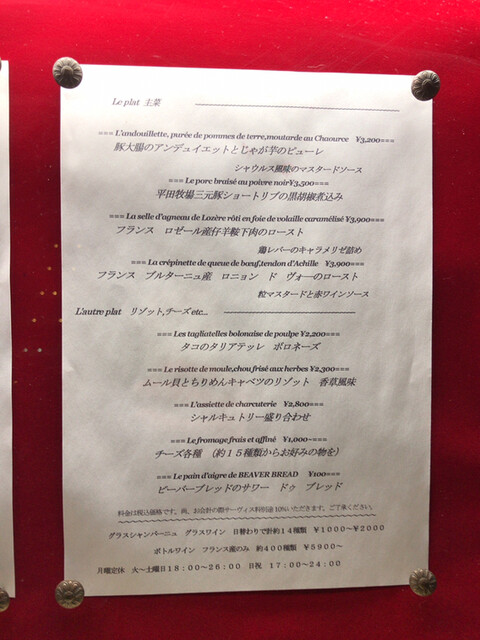 Le plat 主菜
=== L'andouillette, purée de pommes de terre,moutarde au Chaource ¥3,200===
豚大腸のアンデュイエットとじゃが芋のピューレ
シャウルス風味のマスタードソース
=== Le porc braisé au poivre noir¥3,500===
平田牧場三元豚ショートリブの黒胡椒煮込み
=== La selle d'agneau de Lozère rôti en foie de volaille caramélisé ¥3,900===
フランス ロゼール産仔羊鞍下肉のロースト
鶏レバーのキャラメリゼ詰め
=== La crépinette de queue de bœuf,tendon d'Achille ¥3,900===
フランス ブルターニュ産 ロニョン ド ヴォーのロースト
粒マスタードと赤ワインソース
L'autre plat リゾット,チーズ etc...
=== Les tagliatelles bolonaise de poulpe ¥2,200===
タコのタリアテッレ ボロネーズ
=== Le risotte de moule,chou frisé aux herbes ¥2,300===
ムール貝とちりめんキャベツのリゾット 香草風味
=== L'assiette de charcuterie ¥2,800===
シャルキュトリー盛り合わせ
=== Le fromage frais et affiné ¥1,000~===
チーズ各種 (約15種類からお好みの物を)
=== Le pain d'aigre de BEAVER BREAD ¥100===
ビーバーブレッドのサワー ドゥ ブレッド
料金は税込価格です。尚、お会計の際サーヴィス料別途10%いただきます。ご了承ください。
グラスシャンパーニュ グラスワイン 日替わりで計約14種類 ¥1000~¥2000
ボトルワイン フランス産のみ 約400種類 ¥5900~
月曜定休 火~土曜日18:00~26:00 日祝 17:00~24:00